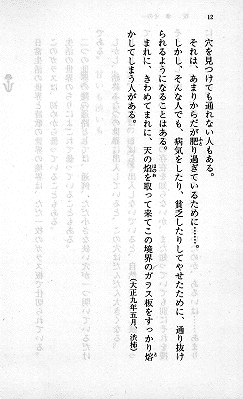 12
穴を見つけても通れない人もある。
それは、あまりからだが肥り過ぎているために……。
しかし、そんな人でも、病気をしたり、貧乏したりしてやせたために、通り抜け
られるようになることはある。
まれに、きわめてまれに、天の焔を取って来てこの境界のガラス板をすっかり熔
かしてしまう人がある。
(大正九年五月、渋柿)